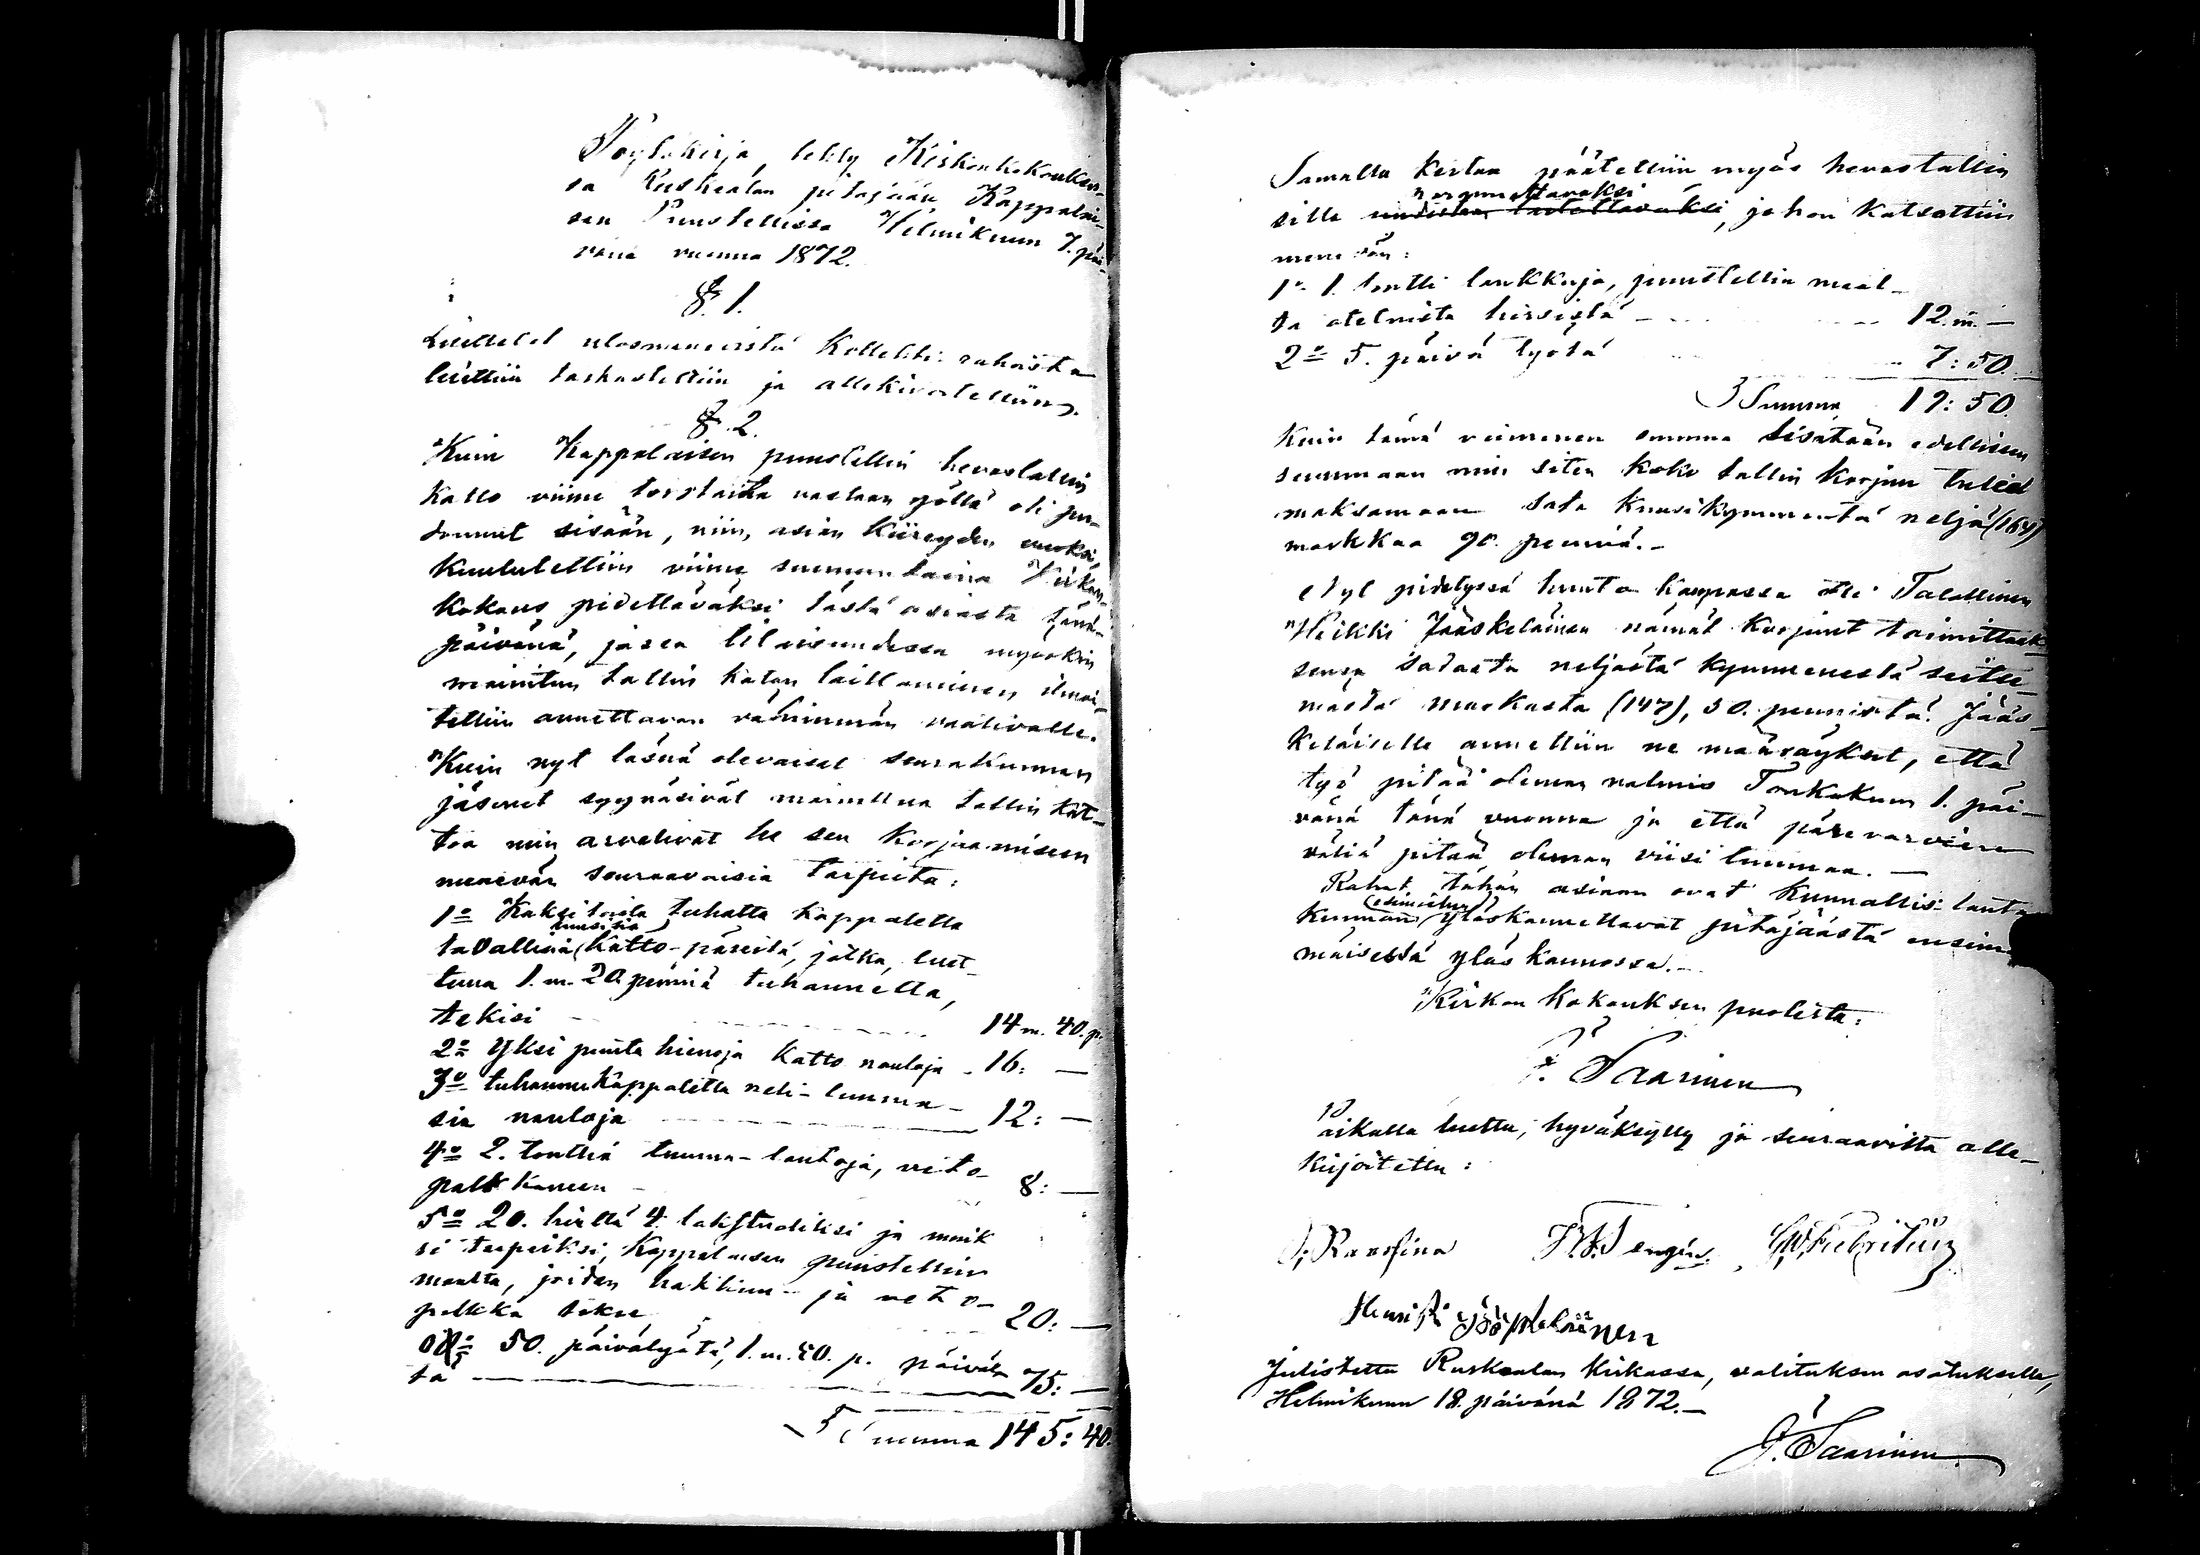 Pöytäkirja, tehty Kirkonkokoukses-
sa Ruskealan pitäjään Kappalai-
sen Puustellissa Helmikuun 7. päi-
vänä vuonna 1872.
§. 1.
Luettelot ulosmenoista Kollehti rahoista
luettiin tarkastettiin ja allekirjoitettiin.
§. 2.
Kuin Kappalaisen puustellin hevostallin
katto viime torstaita vastaan yöllä oli pu-
donnut sisään, niin, asian kiireyden vuoksi,
kuulutettiin viime sunnuntaina Kirkon-
kokous pidettäväksi tästä asiasta tänä-
päivänä, jossa tilaisuudessa myöskin
mainitun tallin katon laittaminen ilmoi-
tettiin annettavan vähimmän vaativalle.
Kuin nyt läsnä olevaiset seurakunnan
jäsenet syynäsivät mainittua tallin kat-
toa niin arvelivat he sen korjaamiseen
menevän seuraavaisia tarpeita:
1o Kaksitoista tuhatta kappaletta
tavallisia (kuusisia katto-päreitä, jotka, luet-
tuna 1. m. 20 penniä tuhannelta,
tekisi 14 m. 40. p.
2o Yksi puuta hienoja katto nauloja - 16: —
3o tuhannu kappaletta neli-tuuma-
sia nauloja 12: —
4o 2. tolttia tuuma-lautoja, veto-
palkkaneen 8: —
5o 20. hirttä 4. ja muik
si tarpeiksi, Kappalaisen puustellin
maalta, joiden hakkuu- ja veto-
palkka tekee 20: —
50. päivätyötä, 1. m. 50. p. päiväl-
tä 75: —
Summa 145: 40.
Samalla kertaa päätettiin myös hevostallin
silta korjattavaksi, johon katsottiin
menevän:
1o 1. toltti lankkuja, puustellin maal-
ta otetuista hirsistä 12. m. —
2o 5. päivä työtä 7: 50.
Summa 19: 50.
Kuin tämä viimeinen summa lisätään edelliseen
summaan niin siten koko tallin korjuu tulee
maksamaan sata kuusikymmentä neljä (164)
markkaa 90. penniä. -
Nyt pidetyssä huuto kaupassa otti Talollinen
Heikki Jääskeläinen nämät korjuut toimittaak-
sensa sadasta neljästä kymmenestä seitse-
mästä markasta (147), 50. pennistä. Jääs-
keläiselle annettiin ne määräykset, että
työ pitää oleman valmis Toukokuun 1. päi-
vänä tänä vuonna ja että pärevarvien
väliä pitää oleman viisi tuumaa. —
Rahat tähän asiaan ovat Kunnallis-lauta
kunnan (esimiehen) ylöskannettavat pitäjäästä ensim-
mäisessä ylös kannossa. -
Kirkon kokouksen puolesta:
J. Saarinen
Paikalla luettu, hyväksytty ja seuraavilta alle-
kirjoitettu:
Henrik Jääskeläinen
Julistettu Ruskealan kirkossa, valituksen osotuksella,
Helmikuun 18. päivänä 1872. —
J. Saarinen.